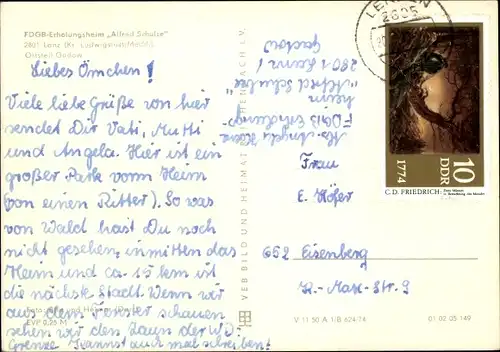 FDGB-Erholungsheim „Alfred Schulze"
2801 Lanz (Kr. Ludwigslust/Meckl.)
Ortsteil Gadow
Liebes Ömchen!
Viele liebe Grüße von hier
sendet Dir Vati, Mutti
und Angela. Hier ist ein
großer Park vom Heim
(von einen Ritter). So was
von Wald hast Du noch
nicht gesehen, inmitten das
Heim und ca. 15 km ist
die nächste Stadt. Wenn wir
aus dem Fenster schauen
sehen wir den Zaun der WD.
Grenze. Kannst auch mal schreiben!
EVP 0,25 M
VEB BILD UND HEIMAT REICHENBACH I. V.
FDGB Erholungs-
heim
"Alfred Schulze"
2801 Lanz /
Gadow
LENZEN
2805
1774
DDR
10
C. D. FRIEDRICH
Frau
E. Höfer
652 Eisenberg
K.-Marx-Str. 9
V 11 50 A 1/B 624/74
01 02 05 149